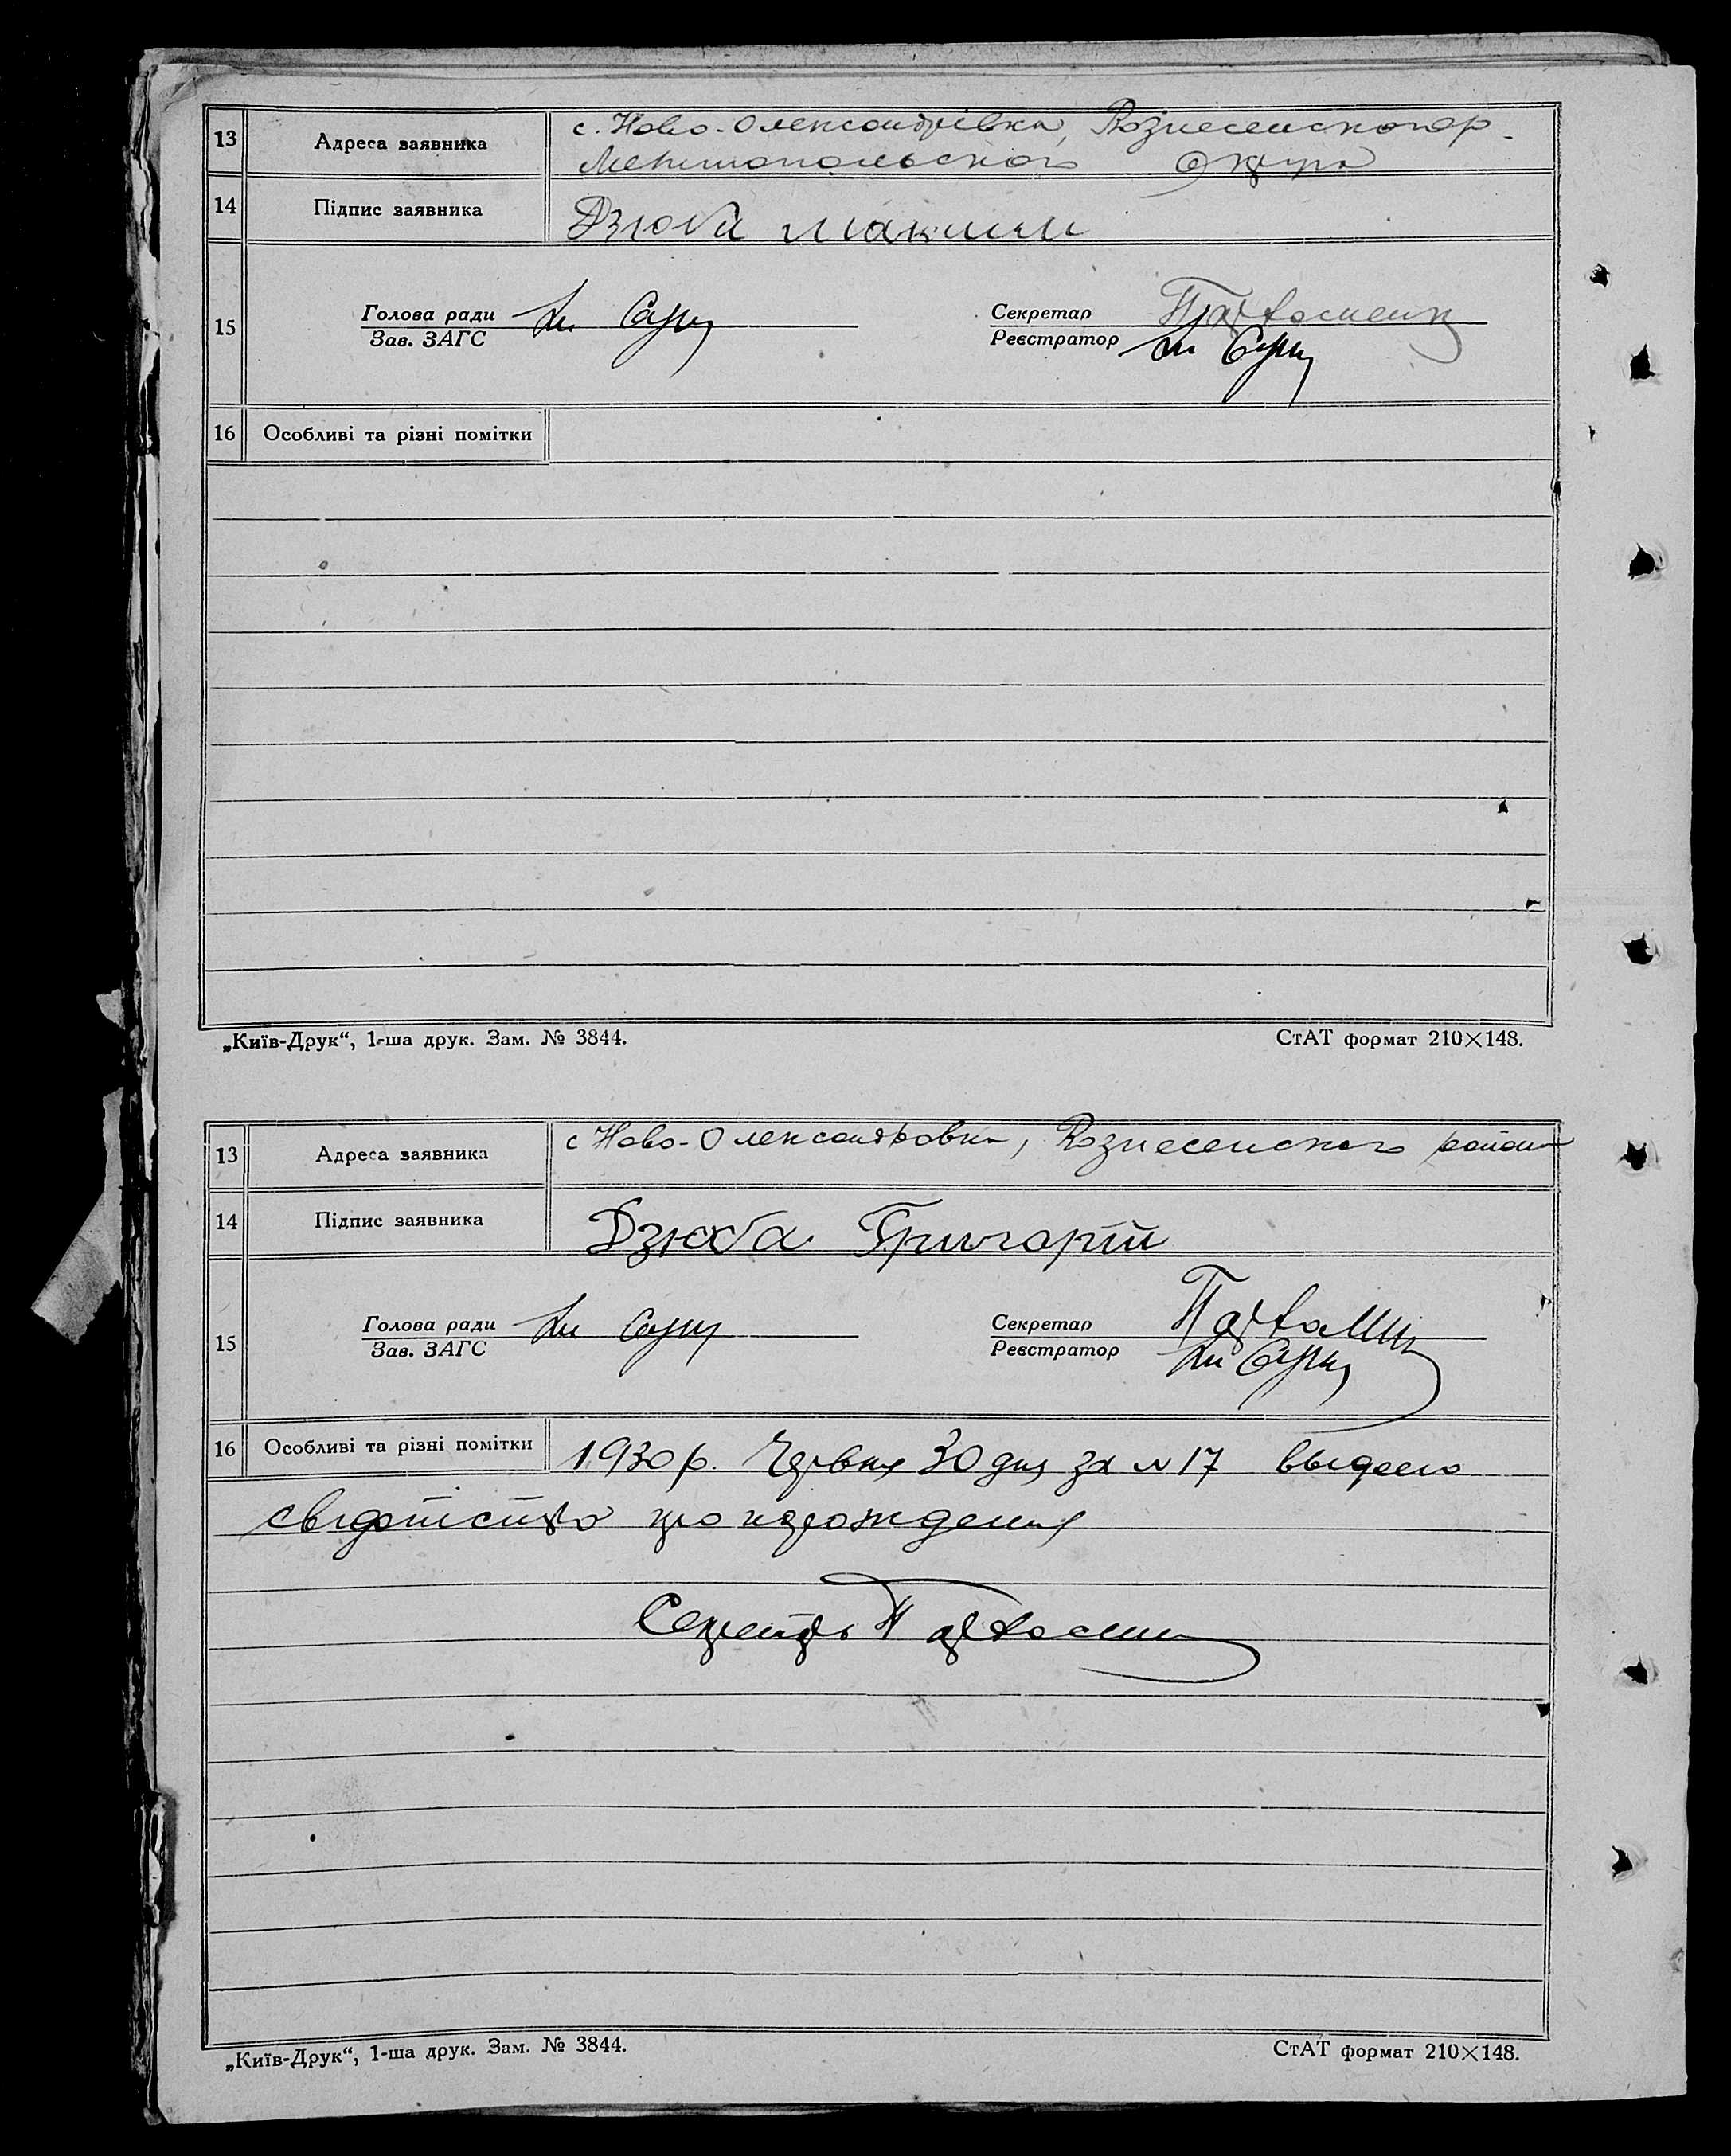 13 Адреса заявника с. Ново-Олександрівка, Вознесенского р.
Мелитопольского Округа
14 Підпис заявника Дзюба Максим
15 Голова ради Секретар
Зав. ЗАГС Реєстратор
16 Особливі та різні помітки
„Київ-Друк“, 1-ша друк. Зам. № 3844. СтАТ формат 210×148.
13 Адреса заявника с Ново-Олександровка, Вознесенского район
14 Підпис заявника Дзюба Григорій
15 Голова ради Секретар
Зав. ЗАГС Реєстратор
16 Особливі та різні помітки 1930 р. Червня 30 дня за № 17 выдано
свідотство про нарождения
Секретарь
„Київ-Друк“, 1-ша друк. Зам. № 3844. СтАТ формат 210×148.